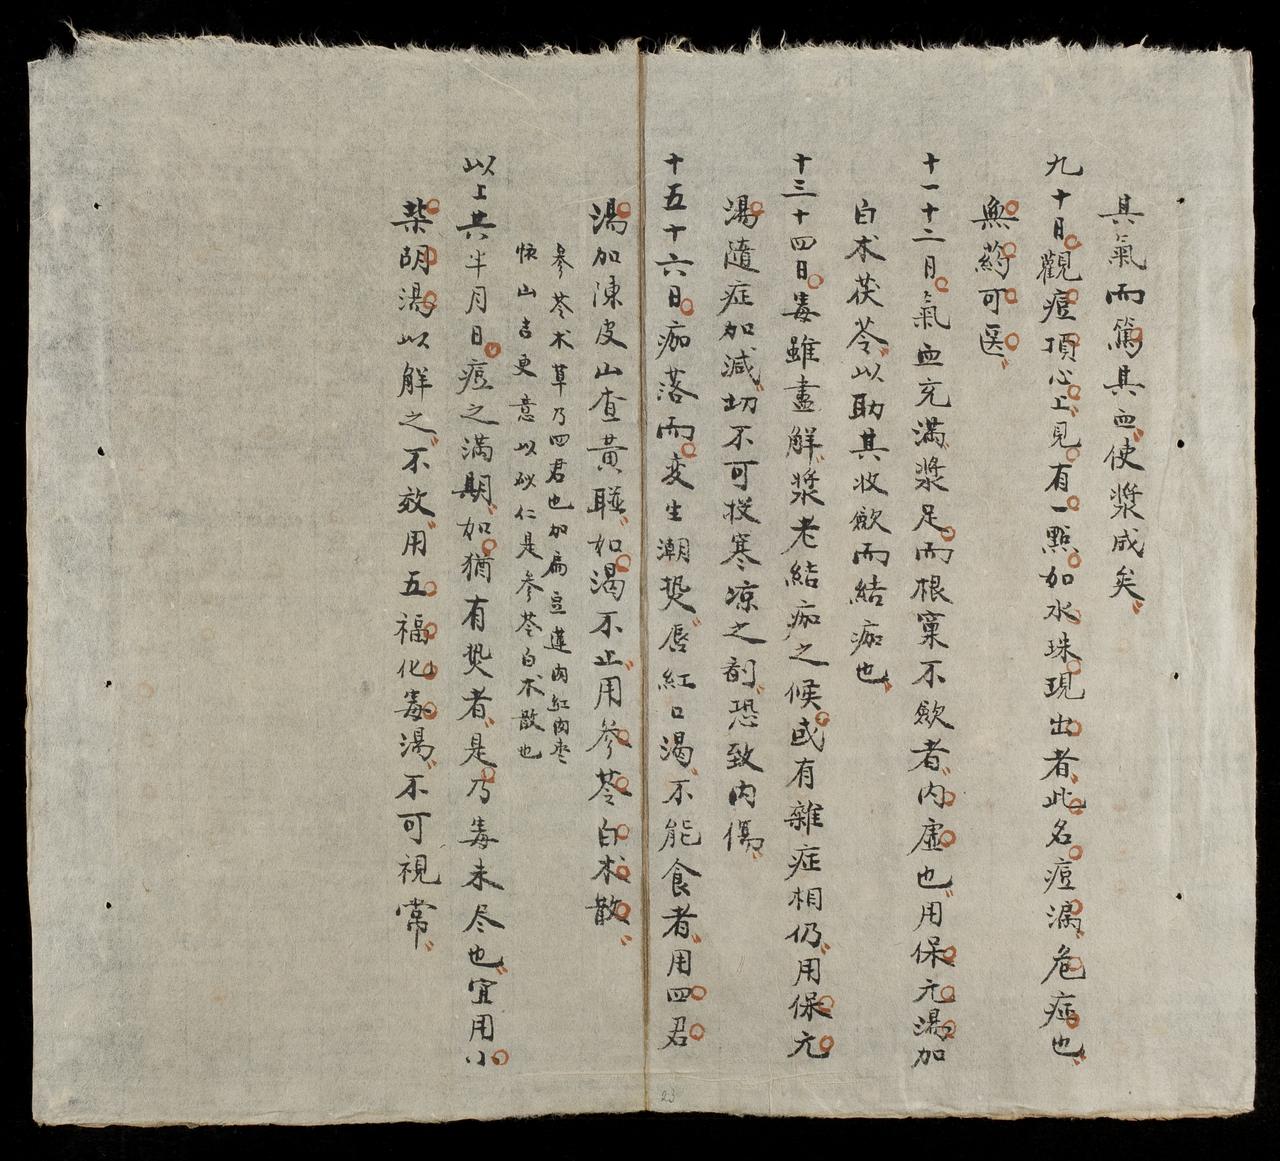 其氣而篤其血使漿成矣
九十日觀痘頂心上見有一點如水珠現出者此名痘漏危症也
無药可医
十一十二日氣血充滿漿足而根窠不歛者内虛也用保元湯加
白术茯苓以助其收歛而結痂也
十三十四日毒雖盡解漿老結痂之候或有雜症相仍用保元
湯隨症加減切不可投寒凉之剤恐致内傷
十五十六日痂落而変生潮熱唇紅口渴不能食者用四君
湯加陳皮山查黃連如渴不止用参苓白术散
参苓术草乃四君也加扁豆蓮肉紅肉枣
懷山吉更意以砂仁是参苓白术散也
以上共半月日痘之滿期如猶有熱者是乃毒未尽也宜用小
柴胡湯以解之不效用五福化毒湯不可視常
23